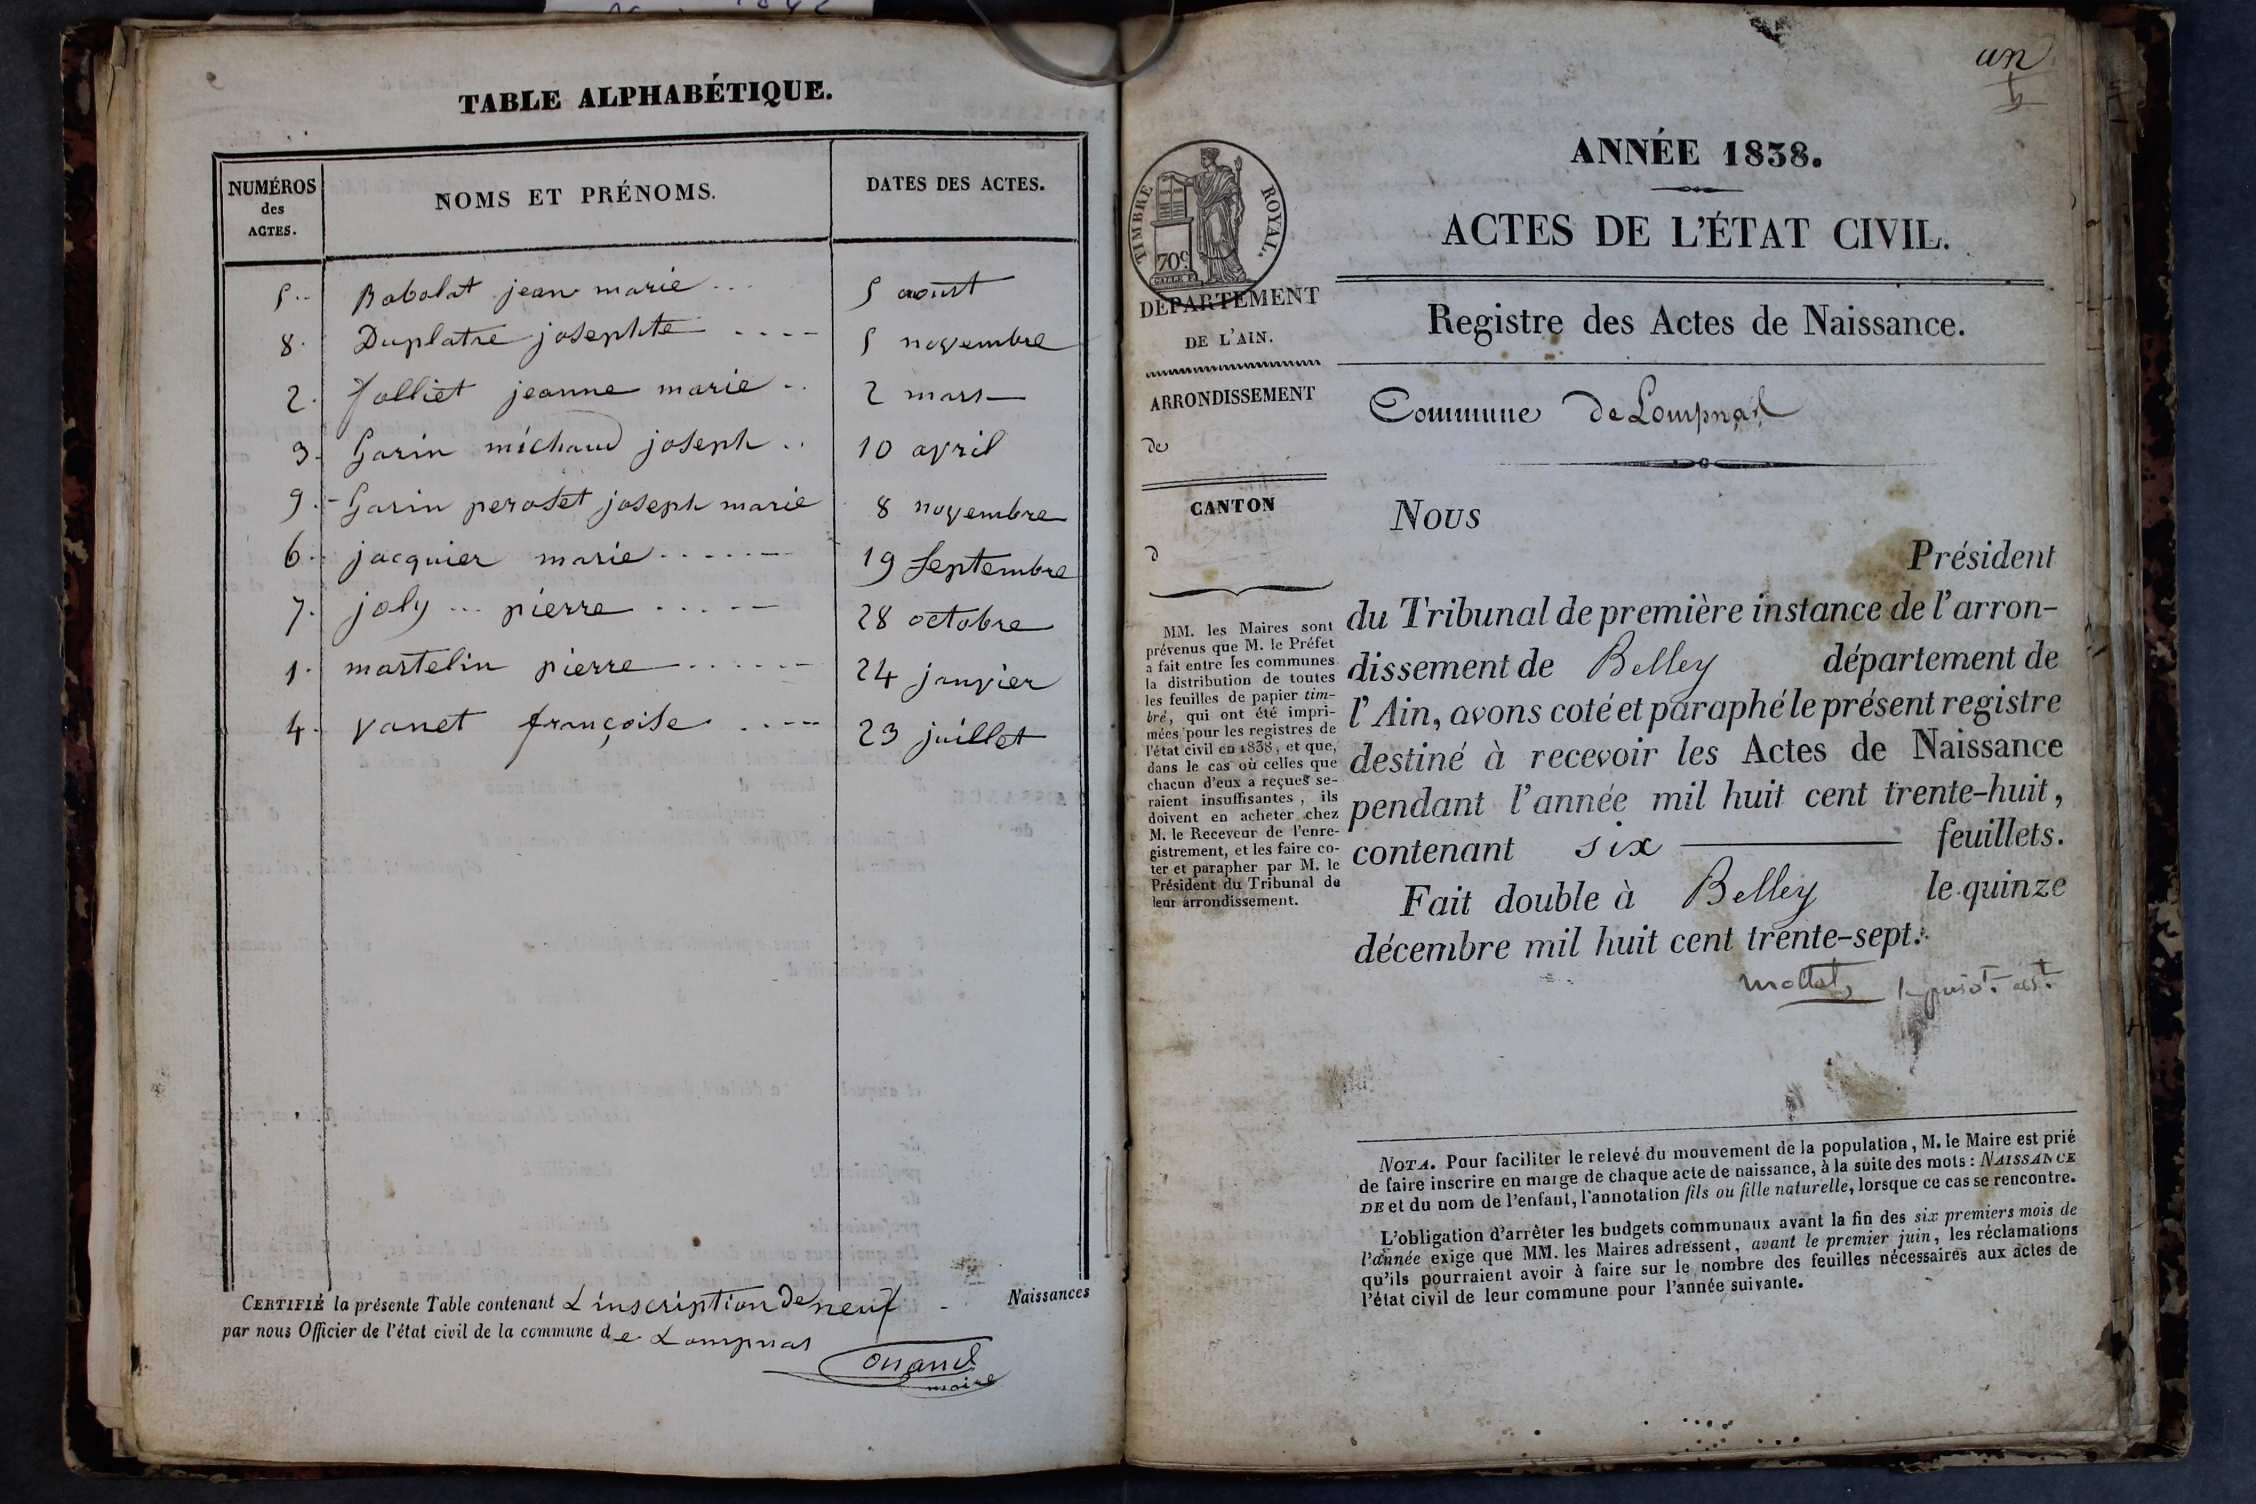 TABLE ALPHABÉTIQUE.
NUMÉROS
des
ACTES.
NOMS ET PRÉNOMS.
DATES DES ACTES.
5 Babolat jean marie 5 aoust
8 Duplatre josephte 5 novembre
2 folliet jeanne marie 2 mars
3 Garin michaud joseph 10 avril
9 Garin peroset joseph marie 8 novembre
6 jacquier marie 19 septembre
7 joly pierre 28 octobre
1 martelin pierre 24 janvier
4 vanet françoise 23 juillet
CERTIFIÉ la présente Table contenant L'inscription De neuf Naissances
par nous Officier de l'état civil de la commune de Lompnas
maire
un
ANNÉE 1838.
ACTES DE L'ÉTAT CIVIL.
Registre des Actes de Naissance.
Commune De Lompnas
TIMBRE ROYAL.
70c
DÉPARTEMENT
DE L'AIN.
ARRONDISSEMENT
de
CANTON
d
MM. les Maires sont
prévenus que M. le Préfet
a fait entre les communes
la distribution de toutes
les feuilles de papier tim-
bré, qui ont été impri-
mées pour les registres de
l'état civil en 1838, et que,
dans le cas où celles que
chacun d'eux a reçues se-
raient insuffisantes, ils
doivent en acheter chez
M. le Receveur de l'enre-
gistrement, et les faire co-
ter et parapher par M. le
Président du Tribunal de
leur arrondissement.
Nous
Président
du Tribunal de première instance de l'arron-
dissement de Belley département de
l'Ain, avons coté et paraphé le présent registre
destiné à recevoir les Actes de Naissance
pendant l'année mil huit cent trente-huit,
contenant six feuillets.
Fait double à Belley le quinze
décembre mil huit cent trente-sept.
NOTA. Pour faciliter le relevé du mouvement de la population, M. le Maire est prié
de faire inscrire en marge de chaque acte de naissance, à la suite des mots : NAISSANCE
DE et du nom de l'enfant, l'annotation fils ou fille naturelle, lorsque ce cas se rencontre.
L'obligation d'arrêter les budgets communaux avant la fin des six premiers mois de
l'année exige que MM. les Maires adressent, avant le premier juin, les réclamations
qu'ils pourraient avoir à faire sur le nombre des feuilles nécessaires aux actes de
l'état civil de leur commune pour l'année suivante.